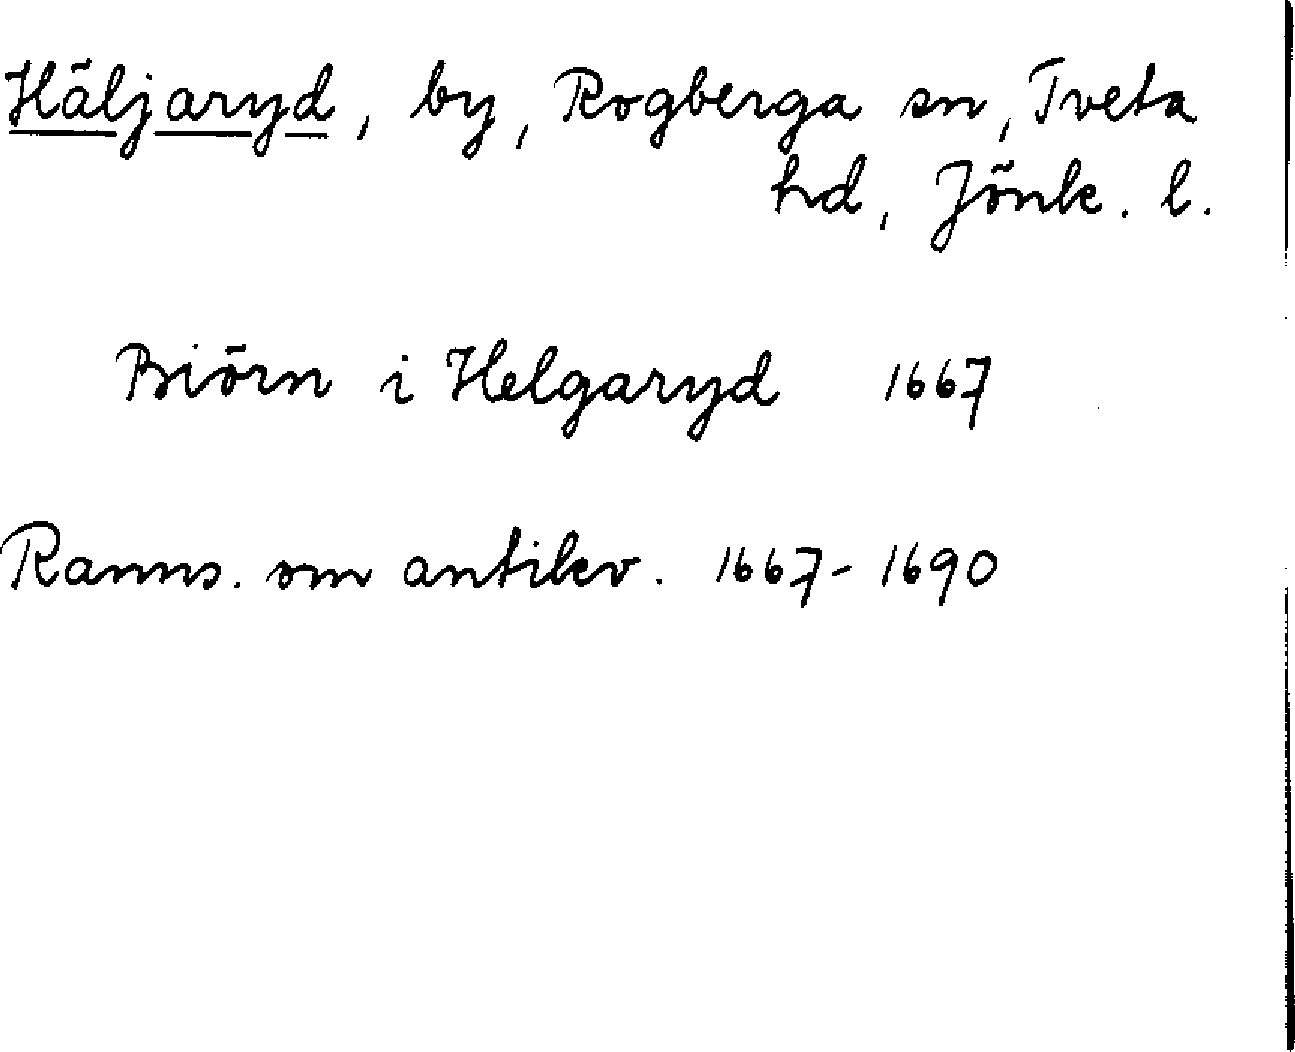 Häljaryd, by, Rogberga sn, Tveta
hd, Jönk. l.
Biörn i Helgaryd 1667
Ranns. om antikv. 1667-1690